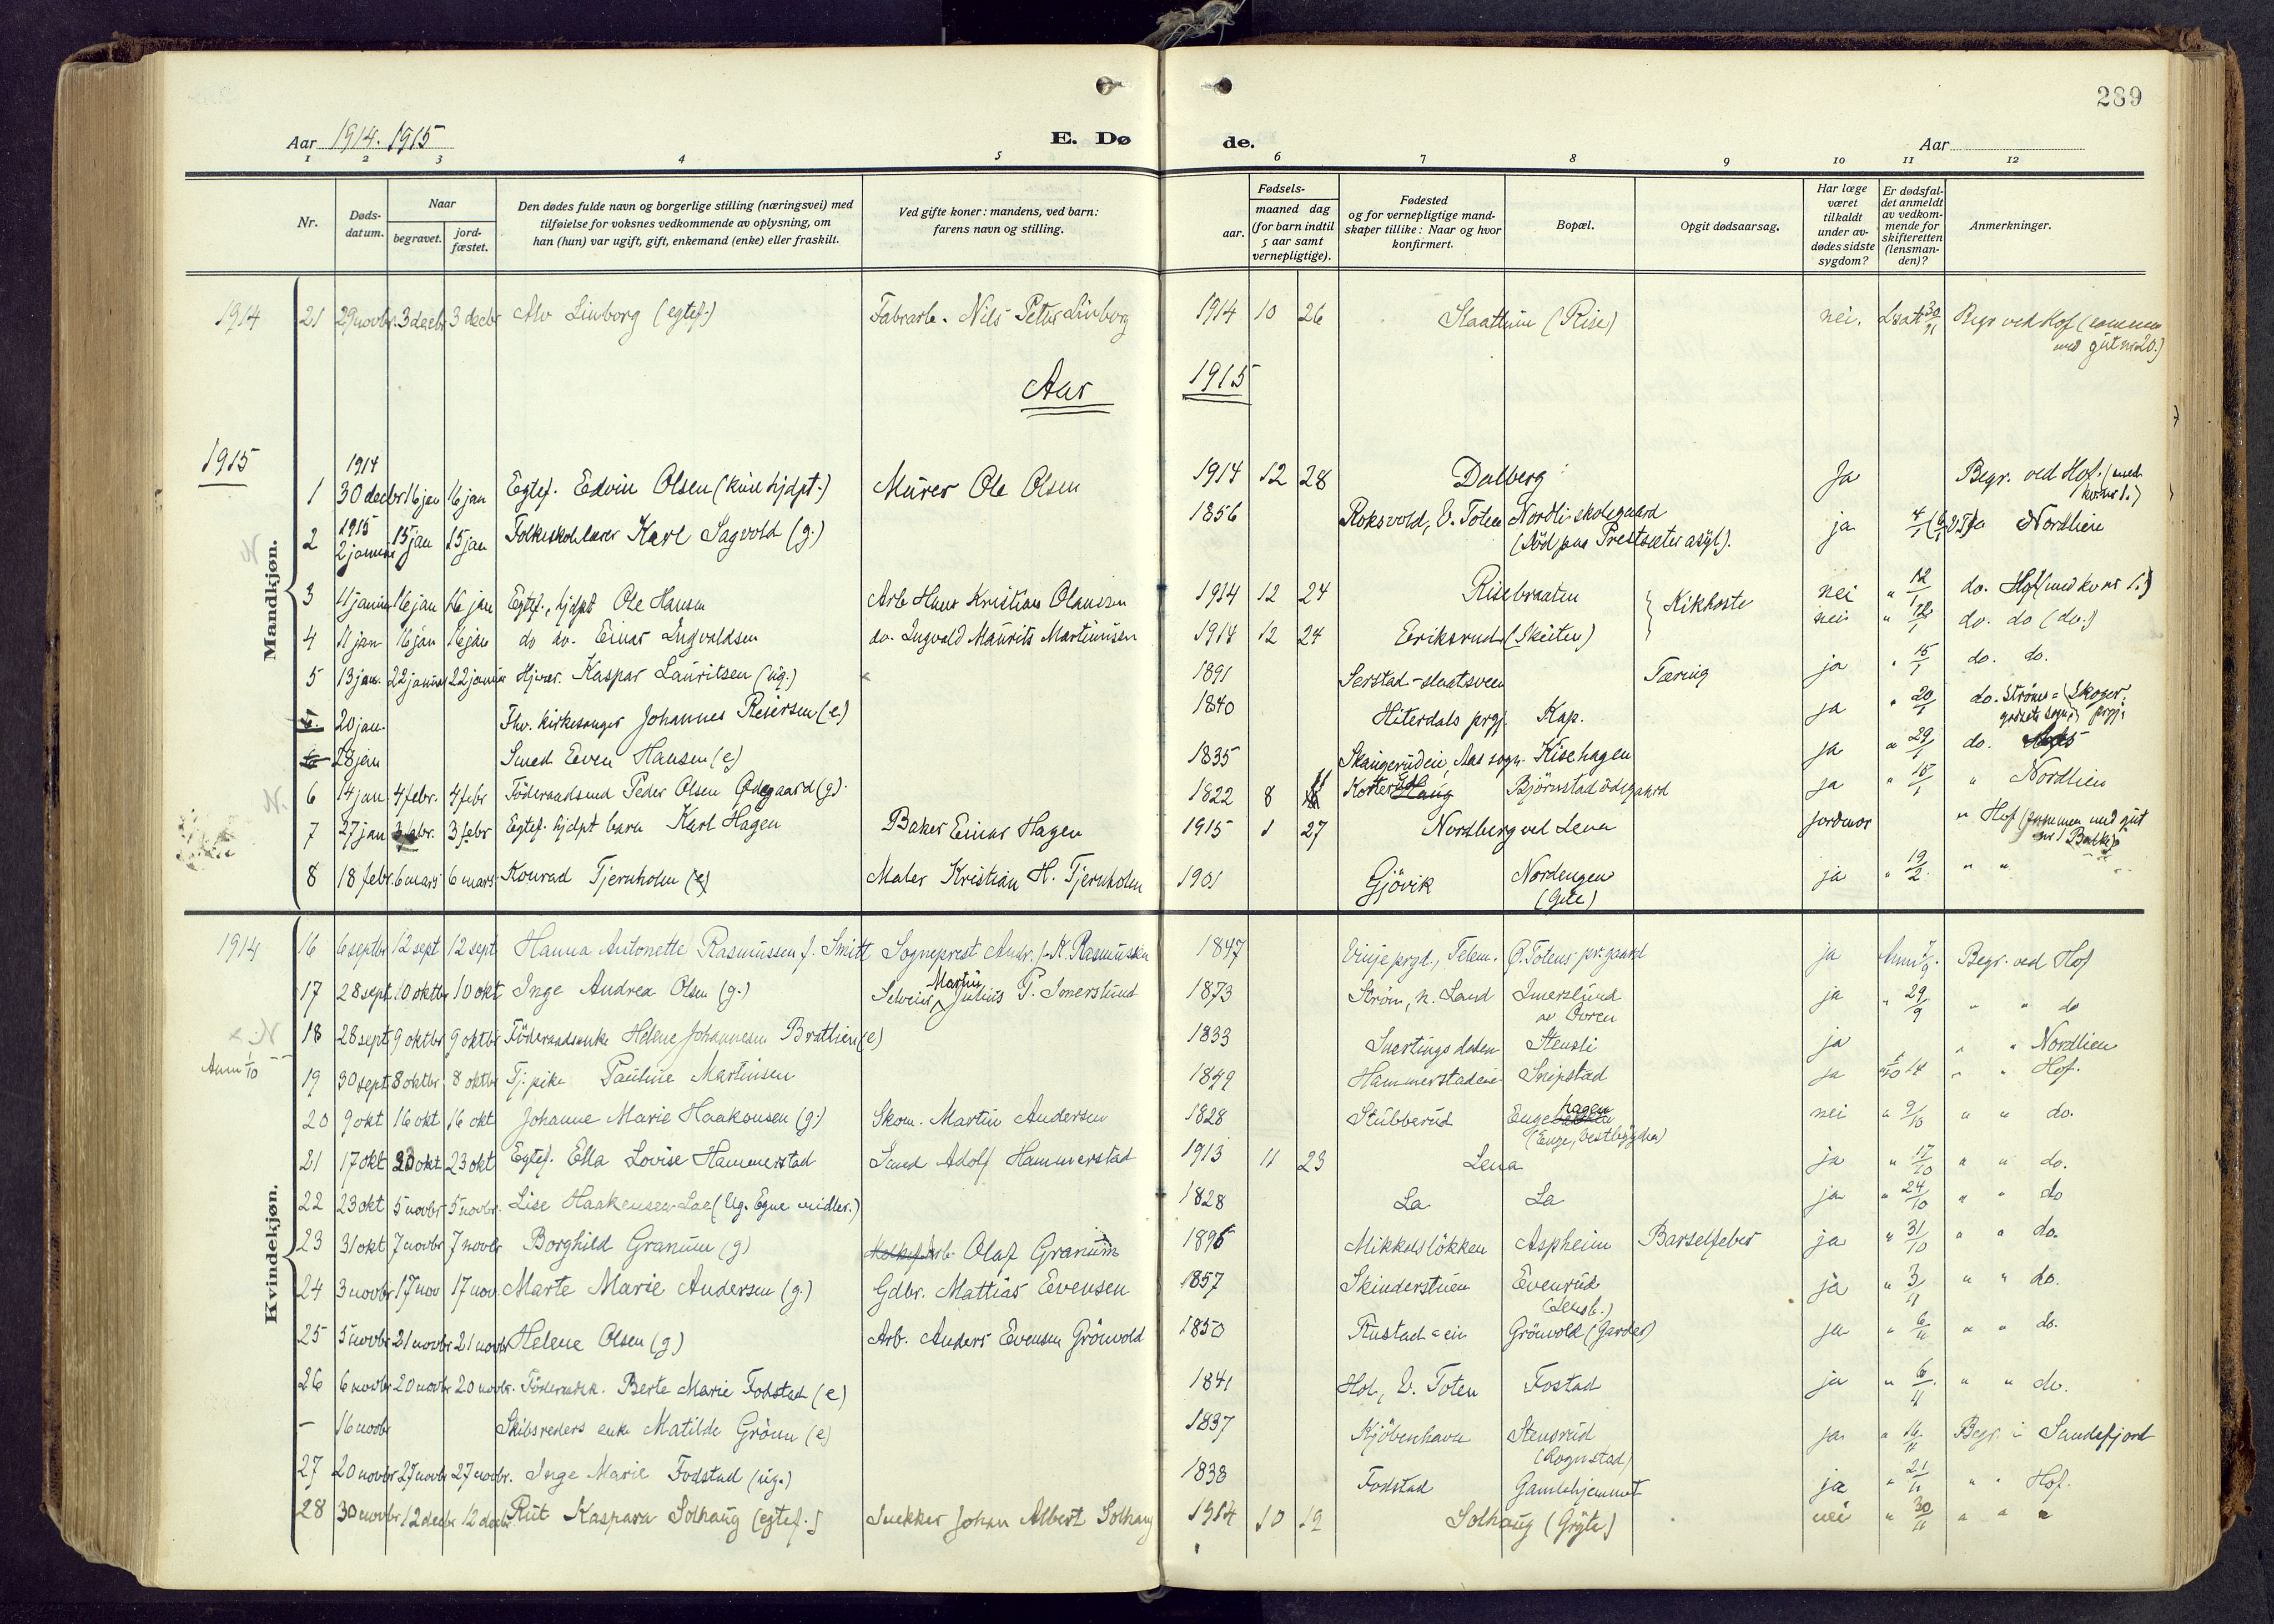 289
Aar 1914. 1915
E. Dø de.
Aar
1 2 3 4 5 6 7 8 9 10 11 12
Nr.
Døds-datum.
Naar
begravet.
jord-fæstet.
Den dødes fulde navn og borgerlige stilling (næringsvei) med tilføielse for voksnes vedkommende av oplysning, om han (hun) var ugift, gift, enkemand (enke) eller fraskilt.
Ved gifte koner: mandens, ved barn: farens navn og stilling.
Fødsels-
aar.
maaned dag
(for barn indtil 5 aar samt vernepligtige).
Fødested og for vernepligtige mandskaper tillike: Naar og hvor konfirmert.
Bopæl.
Opgit dødsaarsag.
Har læge været tilkaldt under avdødes sidste sygdom?
Er dødsfaldet anmeldt av vedkommende for skifteretten (lensmanden)?
Anmerkninger.
Mandkjøn.
1914 21 29 novbr. 3 decbr 3 decbr Alv Linborg (egtef.) Fabrarb. Nils Petter Linborg 1914 10 26 Slaatthim (Rise) nei. 30/11 Begr ved Hof (sammen med gut nr 20.)
Aar 1915
1915
1 1914 30 decbr 16 jan 16 jan Egtef. Edvin Olsen (hjdpt.) Murer Ole Olsen 1914 12 28 Dalberg Ja Begr. ved Hof. (med kv nr 1.)
2 1915 2 januar 15 jan 15 jan Folkeskolelærer Karl Sagvold (g.) 1856 Roksvold, V. Toten Nordli skolegaard (Död paa Prestsæter asyl). ja 4/1 Nordlien
3 11 januar 16 jan 16 jan Egtef., hjdpt Ole Hansen Arb Hans Kristian Olausen 1914 12 24 Risebraaten Kikhoste nei " 12/1 do. Hof (med kv nr 1.)
4 11 jan 16 jan 16 jan do do. Einar Ingvaldsen do. Ingvald Maurits Martinusen 1914 12 24 Eriksrud (Skiten) nei " 12/1 do. do (do.)
5 13 jan. 22 januar 22 januar Kaspar Lauritsen (ug.) 1891 Serstad-slaatsveen Tæring ja " 15/1 do. do.
20 jan. Fhv. kirkesanger Johannes Reiersen (e) 1840 Hiterdals prgj. Kap. ja " 20/1 do. Ströms= (Skoger godsets sogn) prgj.
28 jan Smed Even Hansen (e) 1835 Skaugerudein, Aas sogn Kisehagen ja " 29/1 do.
6 14 jan. 4 febr. 4 febr Föderaadsmd Peder Olsen Ödegaard (g). 1822 8 11 Björnstadödegaard ja " 15/1 " Nordlien
7 27 jan 3 febr. 3 febr Egtef. hjdpt barn Karl Hagen Baker Einar Hagen 1915 1 27 Nordberg ved Lena jordmor " Hof (sammen med gut nr 1 Balke)
8 18 febr. 6 mars 6 mars Konrad Tjernholm Maler Kristian H. Tjernholm 1901 Gjövik Nordengen ja " 19/2 " "
Kvindekjøn.
1914 16 6 septbr 12 sept 12 sept Hanna Antonette Rasmussen f. Smitt Sogneprest Andr. J. K. Rasmussen 1847 Vinje prgd., Telem. Ö. Totens pr.gaard ja Anm 7/9. Begr. ved Hof
17 28 sept 10 oktbr 10 okt Inge Andrea Olsen (g.) Selveier Martin Julius P. Imerslund 1873 Ström, n. Land Imerslund av Ovren ja " 29/9 " " do
18 28 sept 9 oktbr 9 oktbr Föderaadsenke Helene Johannesen Bratlien (e) 1833 Snertingsdalen Stensli ja " " Nordlien
Anm 1/10
19 30 sept 8 oktbr 8 oktbr Tj. pike Pauline Martinsen 1849 Hammerstadeie Snipstad ja " 5/10 14 " " Hof.
20 9 okt 16 okt 16 okt Johanne Marie Haakonsen (g.) Skom. Martin Andersen 1828 Stubberud Engehagen (Enge, Vestbygda) nei " 9/10 " " do.
21 17 okt 23 okt 23 okt Egtef. Ella Lovise Hammerstad Smed Adolf Hammerstad 1913 11 23 Lena ja " 17/10 " " do.
22 23 okt 5 novbr 5 novbr. Lise Haakensen Lae (Ug. Egne midler.) 1828 La La ja " 24/10 " " do
23 31 okt 7 novbr 7 novbr Borghild Granum (g) Arb. Olaf Granum 1895 Mikkelslökken Aspheim Barselfeber ja " 31/10 " " do.
24 3 novbr 17 nov 17 nov. Marte Marie Andersen (g.) Gdbr. Mattias Evensen 1857 Skinderstuen Evenrud (Lensb.) ja " 3/11 " " do.
25 5 novbr 21 novbr 21 novbr Helene Olsen (g) Arb. Anders Evensen Grönvold 1850 Rustad-eie Grönvold (Garder) ja " 6/11 " " do.
26 6 novbr 20 novbr 20 novbr. Föderaadsk. Berte Marie Fodstad (e) 1841 Hol, V. Toten Fostad ja " 6/11. " " do.
– 16 novbr Skibsreders enke Matilde Grönn (e) 1837 Kjöbenhavn Stensrud (Rognstad) ja " 16/11 Begr. i Sandefjord
27 20 novbr 27 novbr 27 novbr. Inge Marie Fodstad (ug.) 1838 Fodstad Gamlehjemmet ja " 21/11 " " Hof.
28 30 novbr 12 decbr 12 decbr Rut Kaspara Solhaug (egtef.) Snekker Johan Albert Solhaug 1914 10 19 Solhaug (Gryte) nei " 30/11 " " "